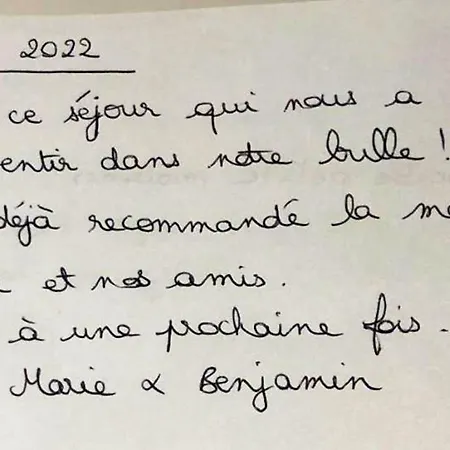 2022
ce séjour qui nous a
entir dans notre bulle !
déjà recommandé la m
et nos amis.
à une prochaine fois.
Marie & Benjamin